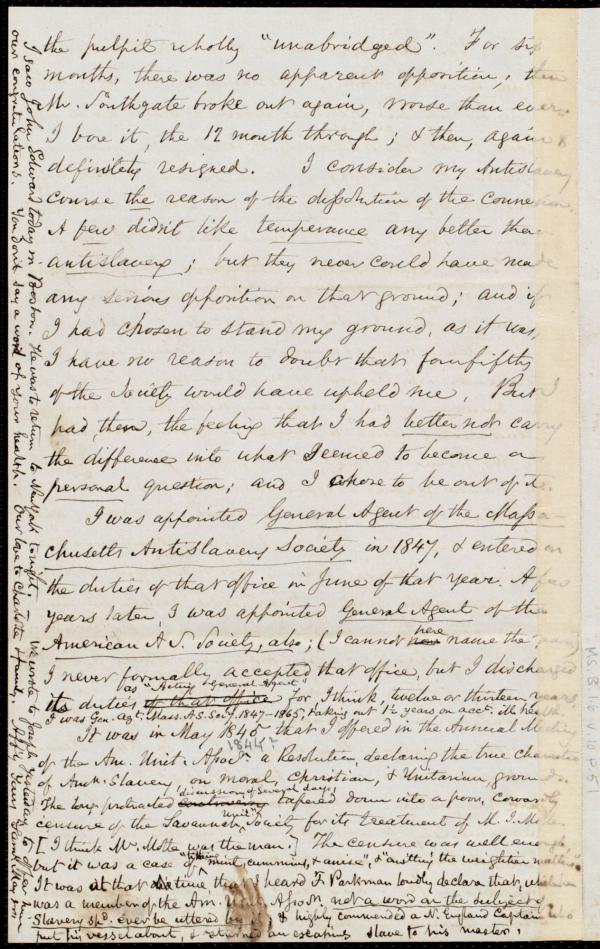 the pulpit wholly "unabridged". For six
months, there was no apparent opposition; then
Mr. Southgate broke out again, worse than ever.
I bore it, the 12 month through; & then, again &
definitely resigned. I consider my Antislavery
course the reason of the dissolution of the connexion.
A few didn't like temperance any better than
antislavery; but they never could have made
any serious opposition on that ground; and if
I had chosen to stand my ground, as it was,
I have no reason to doubt that four fifths
of the Society would have upheld me. But I
had, then, the feeling that I had better not carry
the difference into what seemed to become a
personal question; and I chose to be out of it.
I was appointed General Agent of the Massa-
chusetts Antislavery Society in 1847, & entered on
the duties of that office in June of that year. A few
years later, I was appointed General Agent of the
American A. S. Society, also; (I cannot here name the year)
I never formally accepted that office, but I discharged
its duties as "Acting General Agent" for I think, twelve or thirteen years
I was Gen. Agt. Mass. A. S. Socy. 1847-1865, taking out 1½ years on acct. ill health.
It was in May 1845 that I offered in the Annual Meeting
1844?
of the Am. Unit. Assocn. a Resolution, declaring the true character
of Amn. Slavery, on moral, Christian, & Unitarian, grounds.
The long protracted discussion of several days tapered down into a poor, cowardly
censure of the Savannah Unitn. Society for its treatment of M. I. Motte
[I think Mr. Motte was the man.] The censure was well enough,
but it was a case of tithing "mint, cummin, & anise", & "omitting the weightier matters"
It was at that time that I heard F. Parkman loudly declare that, while he
was a member of the Am. Unit. Asson. not a word on the subject of
Slavery shd. ever be uttered by it; & highly commended a N. England Captain who
put his vessel about, & returned an escaping slave to his master.
I saw John Edward today in Boston. He was to return to New York tonight. We wrote to Joseph yesterday to offer him
our congratulations. You don't say a word of your health. Our love to Charlotte & family. Affy. Yours, Saml. May Jr.
MS B.1.6 v.10 p.51